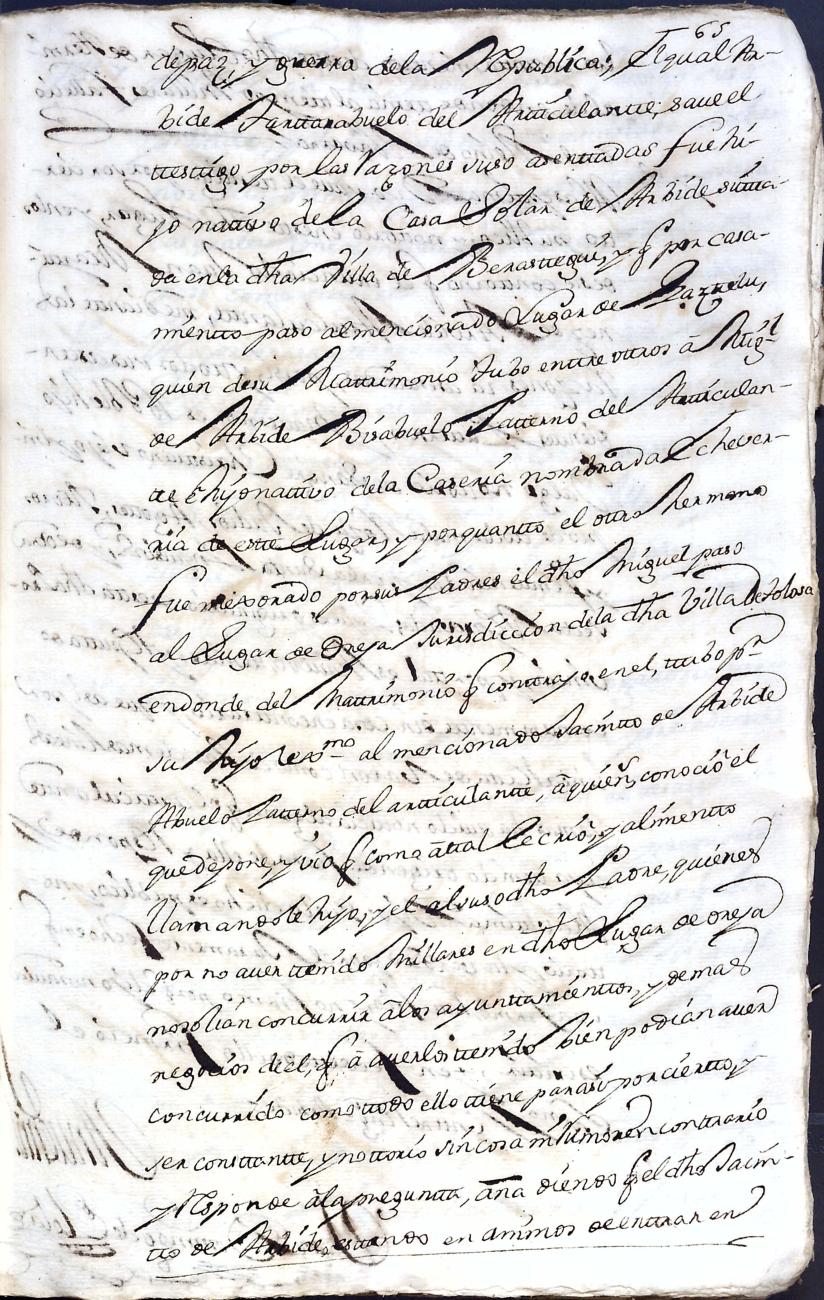 65
de paz, y guerra dela Republica; El qual Ar-
bide Tartarabuelo del Articulante, save el
testigo por las razones suso asentadas fue hi-
jo nativo de la Casa Solar de Arbide sitta-
da en la dha Villa de Berastegui, y q por casa-
miento paso al mencionado Lugar de Gaztelu,
quien de su Matrimonio tubo entre otros â Migl
de Arbide Bisabuelo Paterno del Articulan-
te e hijo nativo dela Caseria nombrada Echever-
ria de este Lugar, y por quanto el otro hermano
fue mejorado por sus Padres el dho Miguel paso
al Lugar de Oreja Jurisdiccion dela dha Villa de Tolosa
en donde del Matrimonio q contrajo en el, tubo pr
su hijo lexmo al mencionado Jacinto de Arbide
Abuelo Paterno del articulante, â quien conocio el
que depone, y vio q como â tal le crio, y alimento
llamandole hijo, y el al suso dho Padre, quienes
por no aver tenido Millares en dho Lugar de oreja
no solian concurrir â los ayuntamientos, y demas
negocios de el, q â averlos tenido bien podian aver
concurrido como todo ello tiene para si por cierto, y
ser constante, y notorio sin cosa ni rumor en contrario
y Responde â la pregunta, añadiendo q el dho Jacin-
to de Arbide, estando en animos de entrar en